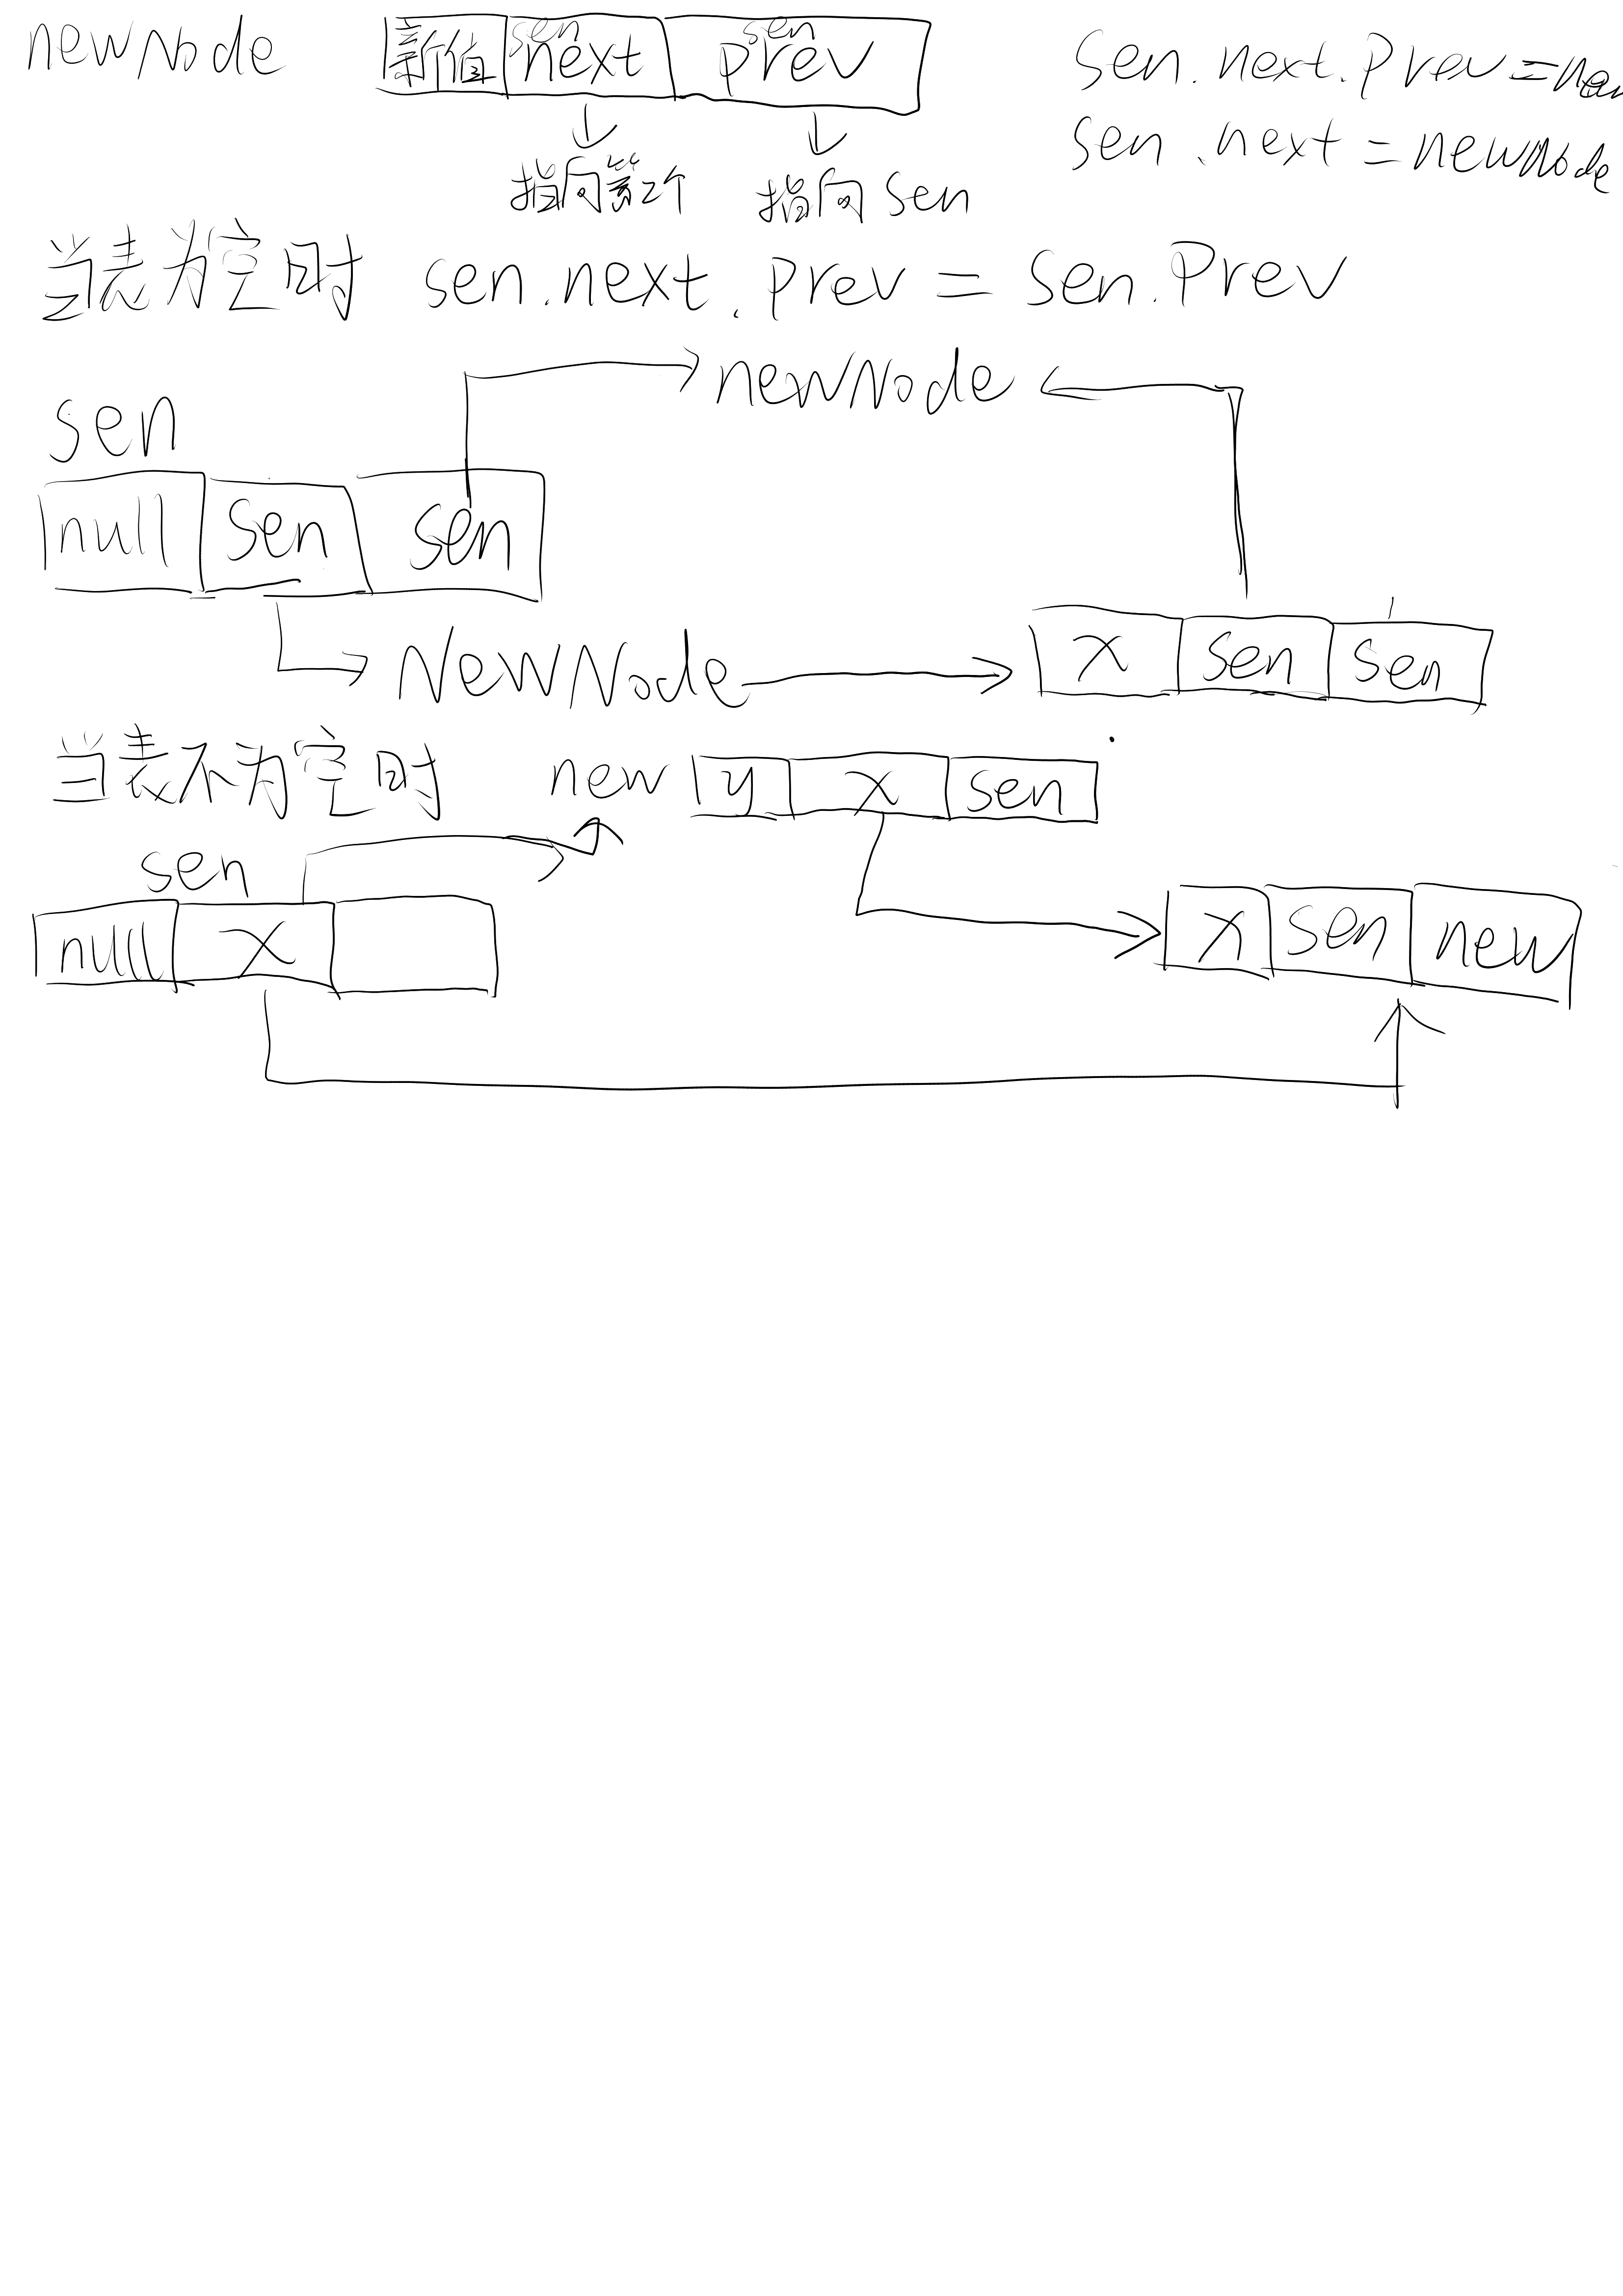 newNode 新值 sen next sen prev sen.next.prev=new
指向第2个 指向sen sen.next=newNode
当表为空时 sen.next.prev=sen.prev
newNode
sen
null sen sen
NewNode x sen sen
当表不为空时 new y x sen
sen
null x x sen new